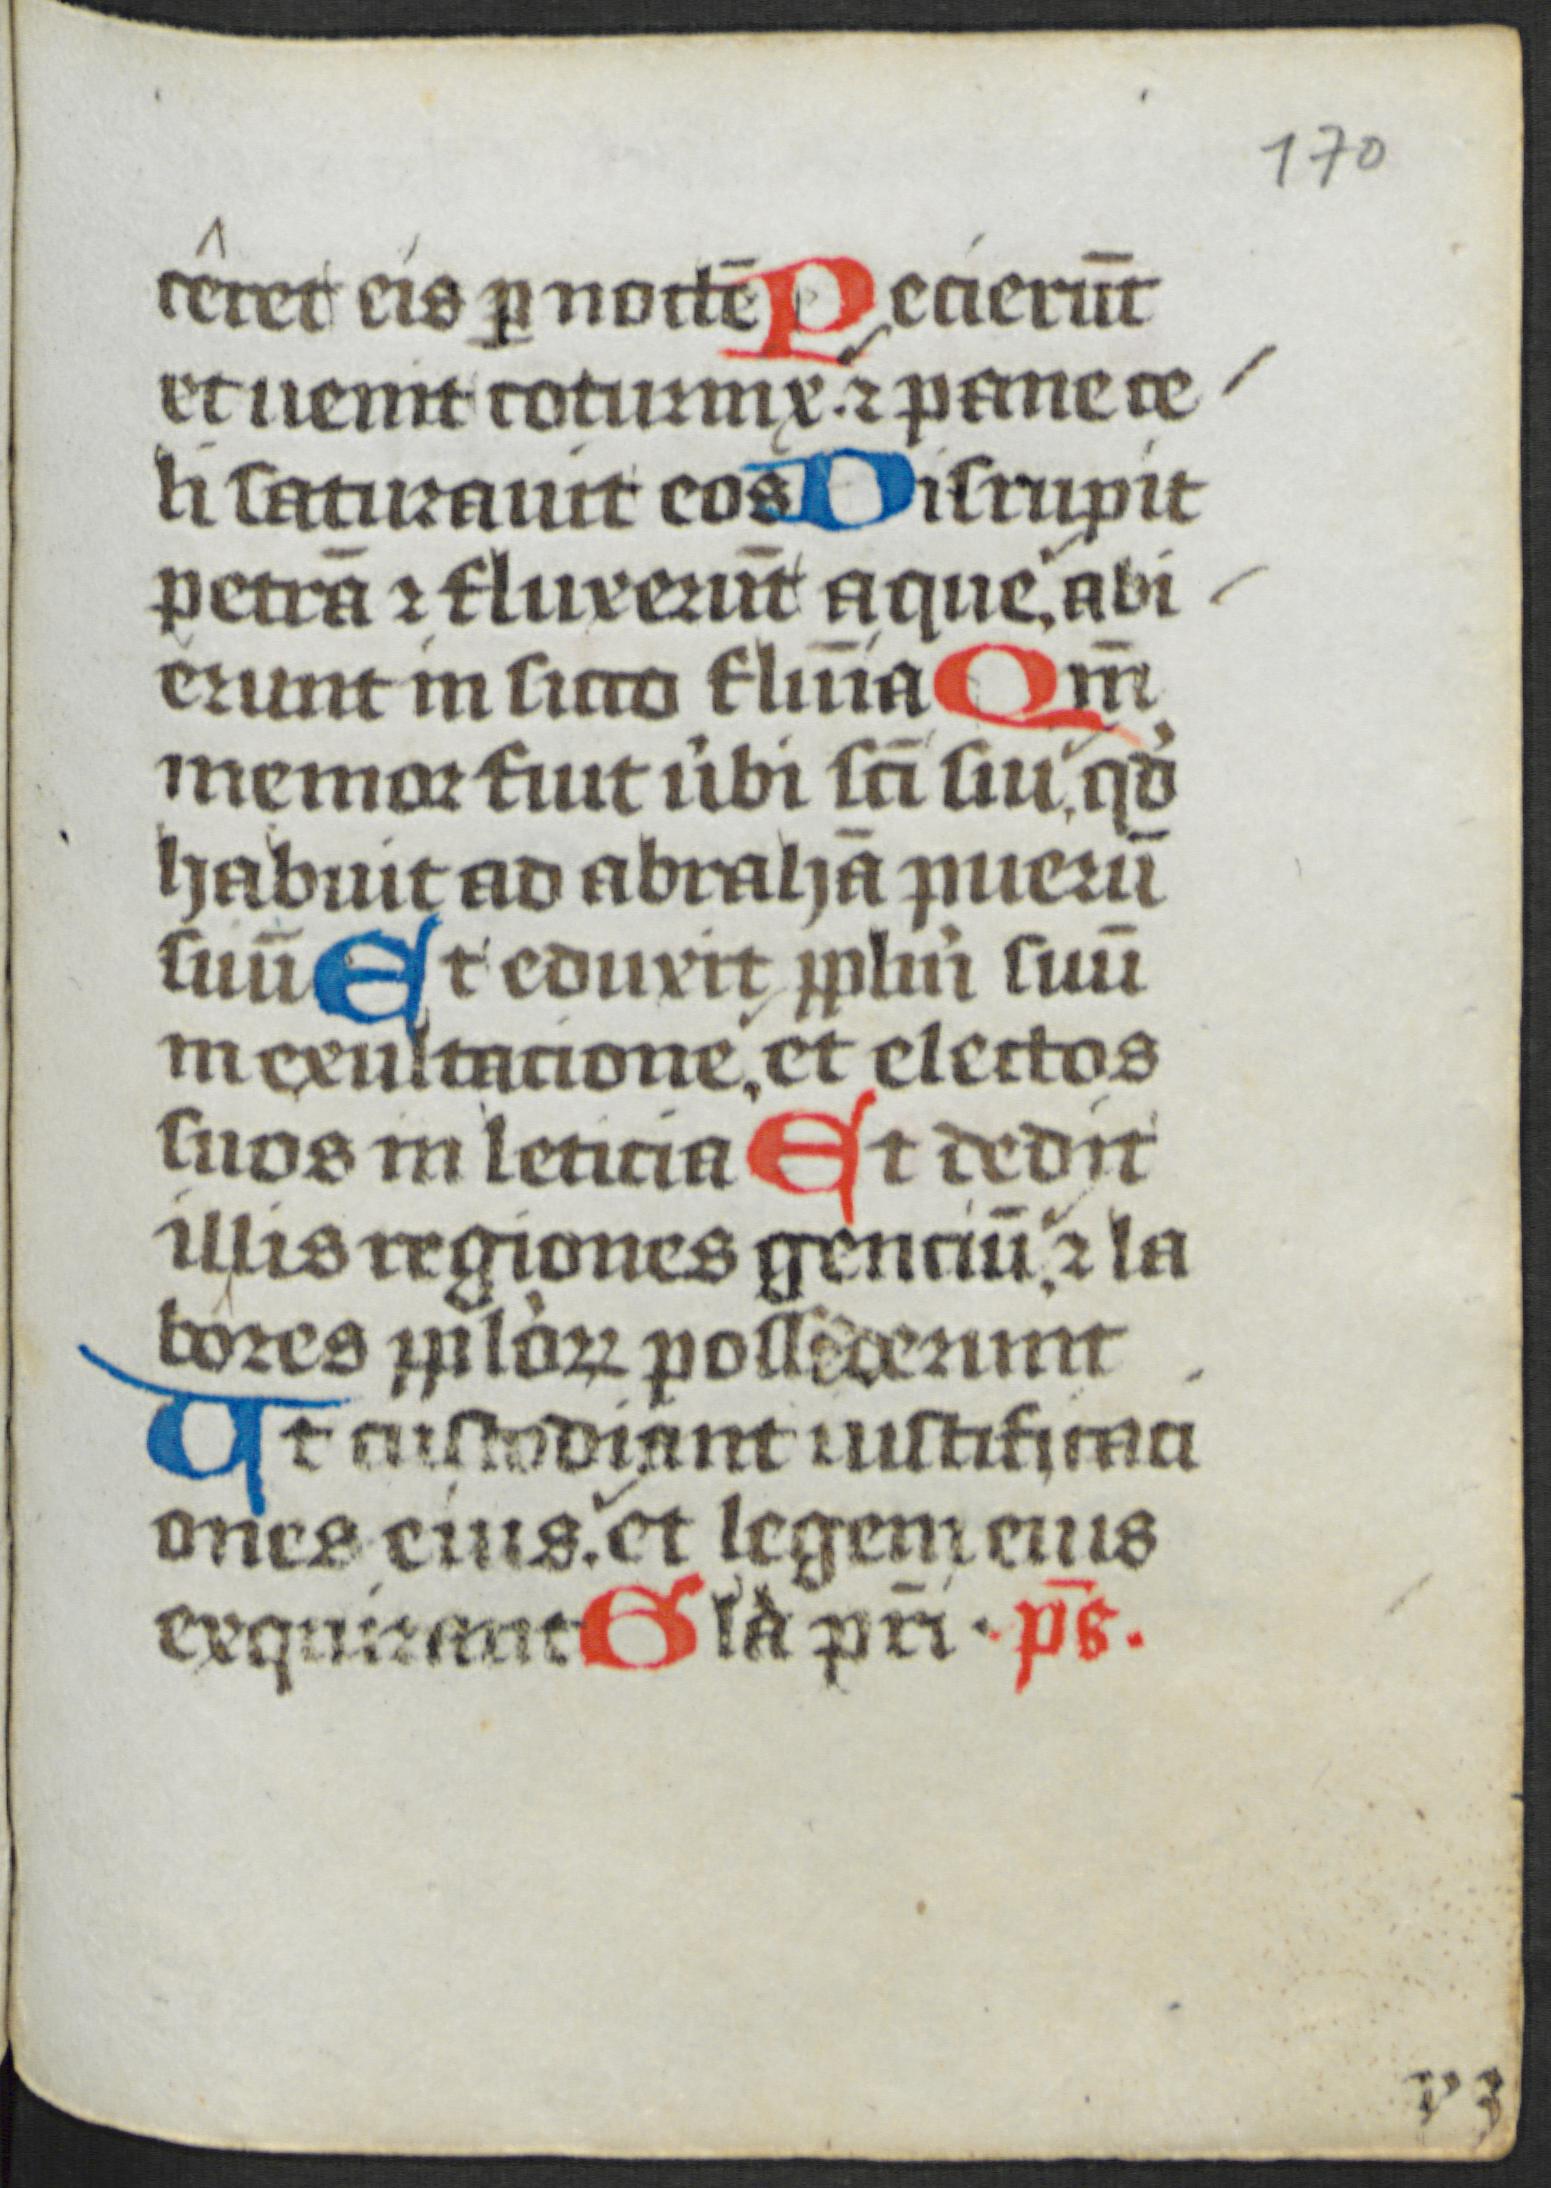 170
ceret eis ꝑ noctē Pecierūt
et uenit coturnix. ⁊ pane ce
li saturauit eos Disrupit
petrā ⁊ fluxerūt aque, abi
erunt in sicco flūīa Qm̄
memor fuit u̓bi sc̄i sui, qd̓
habuit ad abrahā puerū
suū Et eduxit pplm̄ suū
in exultacione, et electos
suos in leticia Et dedit
illis regiones genciū, ⁊ la
bores ppl̓oꝝ possederunt
Ut custodiant iustificaci
ones eius. et legem eius
exquirant Gl̓a pr̄i. p̄s.